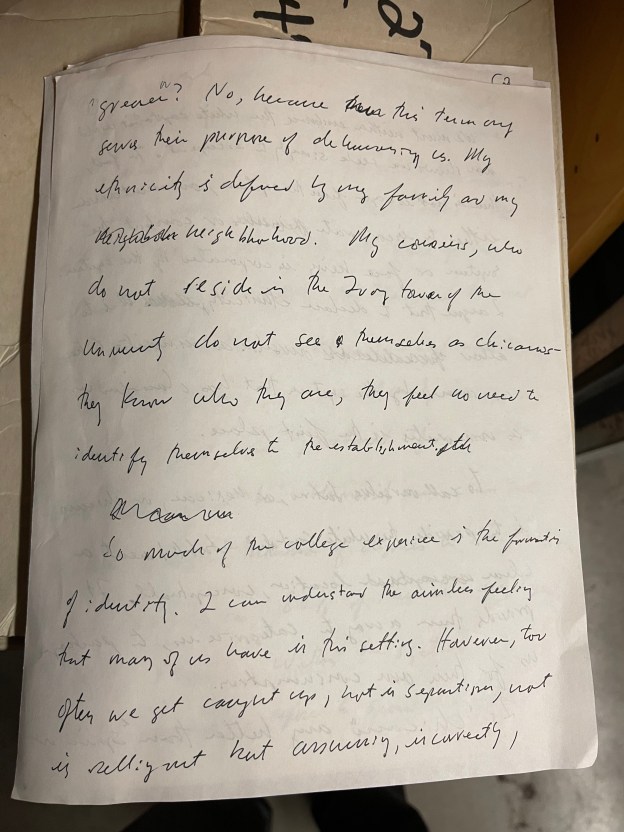 24
"greaser"? No, because this term only
serves their purpose of dehumanizing us. My
ethnicity is defined by my family and my
neighborhood. My cousins, who
do not reside in the Ivory tower of the
University do not see themselves as chicanos—
they know who they are, they feel no need to
identify themselves to the establishment.
So much of the college experience is the formation
of identity. I can understand the aimless feeling
that many of us have in this setting. However, too
often we get caught up, not in separatism, not
in selling out but assuming, incorrectly,